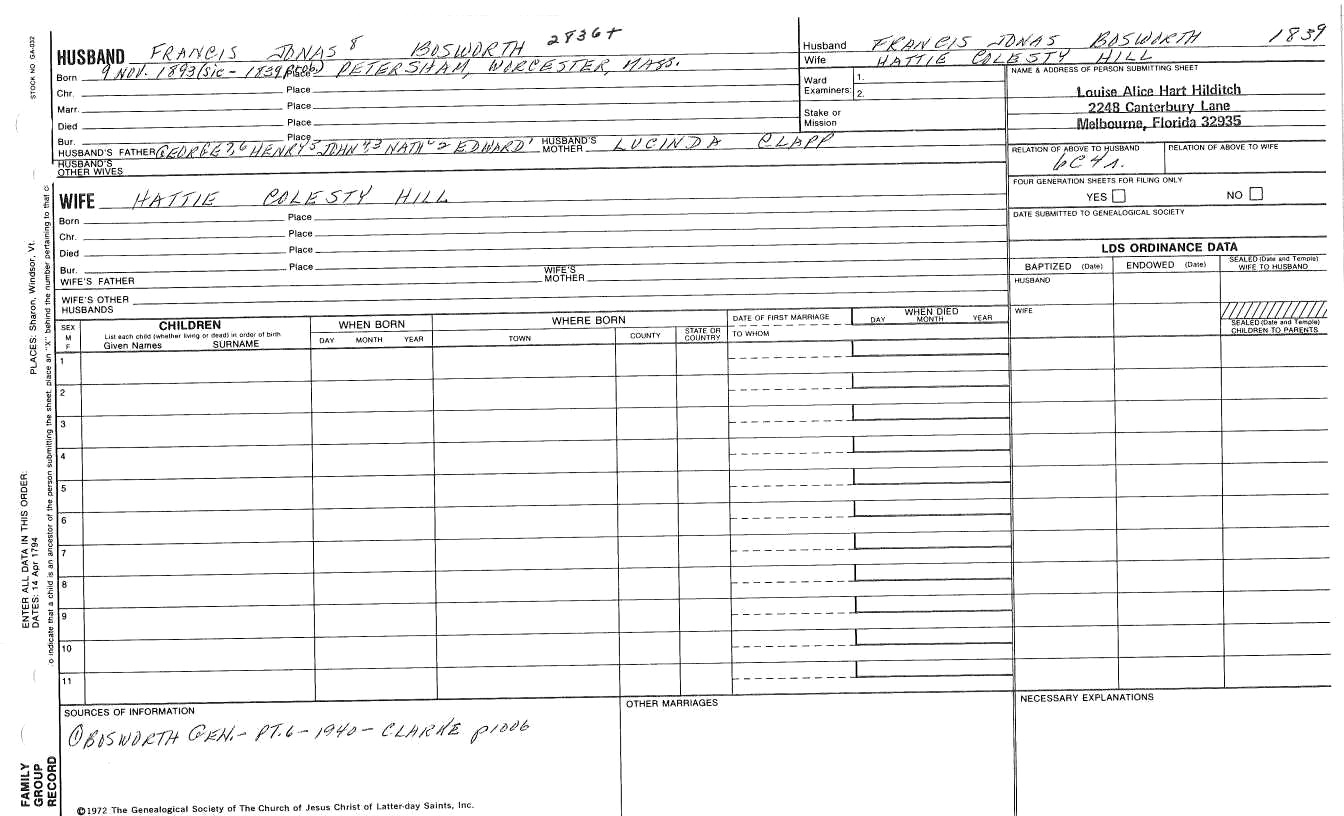 STOCK NO. GA-032
PLACES: Sharon, Windsor, Vt.
ENTER ALL DATA IN THIS ORDER:
DATES: 14 Apr 1794
to indicate that a child is an ancestor of the person submitting the sheet, place an "X" behind the number pertaining to that c
FAMILY GROUP RECORD
HUSBAND FRANCIS JONAS 8 BOSWORTH 2836+
Born 9 NOV. 1893 (sic - 1839 prob) Place PETERSHAM, WORCESTER, MASS.
Chr. Place
Marr. Place
Died Place
Bur. Place
HUSBAND'S FATHER GEORGE 7,6 HENRY 5 JOHN 4,3 NATH'L 2 EDWARD 1 HUSBAND'S MOTHER LUCINDA CLAPP
HUSBAND'S OTHER WIVES
WIFE HATTIE COLESTY HILL
Born Place
Chr. Place
Died Place
Bur. Place
WIFE'S FATHER WIFE'S MOTHER
WIFE'S OTHER HUSBANDS
Husband FRANCIS JONAS BOSWORTH 1839
Wife HATTIE COLESTY HILL
Ward Examiners: 1.
2.
Stake or Mission
NAME & ADDRESS OF PERSON SUBMITTING SHEET
Louise Alice Hart Hilditch
2248 Canterbury Lane
Melbourne, Florida 32935
RELATION OF ABOVE TO HUSBAND RELATION OF ABOVE TO WIFE
6C4r.
FOUR GENERATION SHEETS FOR FILING ONLY
YES NO
DATE SUBMITTED TO GENEALOGICAL SOCIETY
LDS ORDINANCE DATA
BAPTIZED (Date) ENDOWED (Date) SEALED (Date and Temple) WIFE TO HUSBAND
HUSBAND
WIFE
SEALED (Date and Temple) CHILDREN TO PARENTS
SEX M F
CHILDREN
List each child (whether living or dead) in order of birth
Given Names SURNAME
WHEN BORN
DAY MONTH YEAR
WHERE BORN
TOWN COUNTY STATE OR COUNTRY
DATE OF FIRST MARRIAGE
TO WHOM
WHEN DIED
DAY MONTH YEAR
1
2
3
4
5
6
7
8
9
10
11
SOURCES OF INFORMATION
① BOSWORTH GEN. - PT. 6 - 1940 - CLARKE p1006
OTHER MARRIAGES
NECESSARY EXPLANATIONS
©1972 The Genealogical Society of The Church of Jesus Christ of Latter-day Saints, Inc.